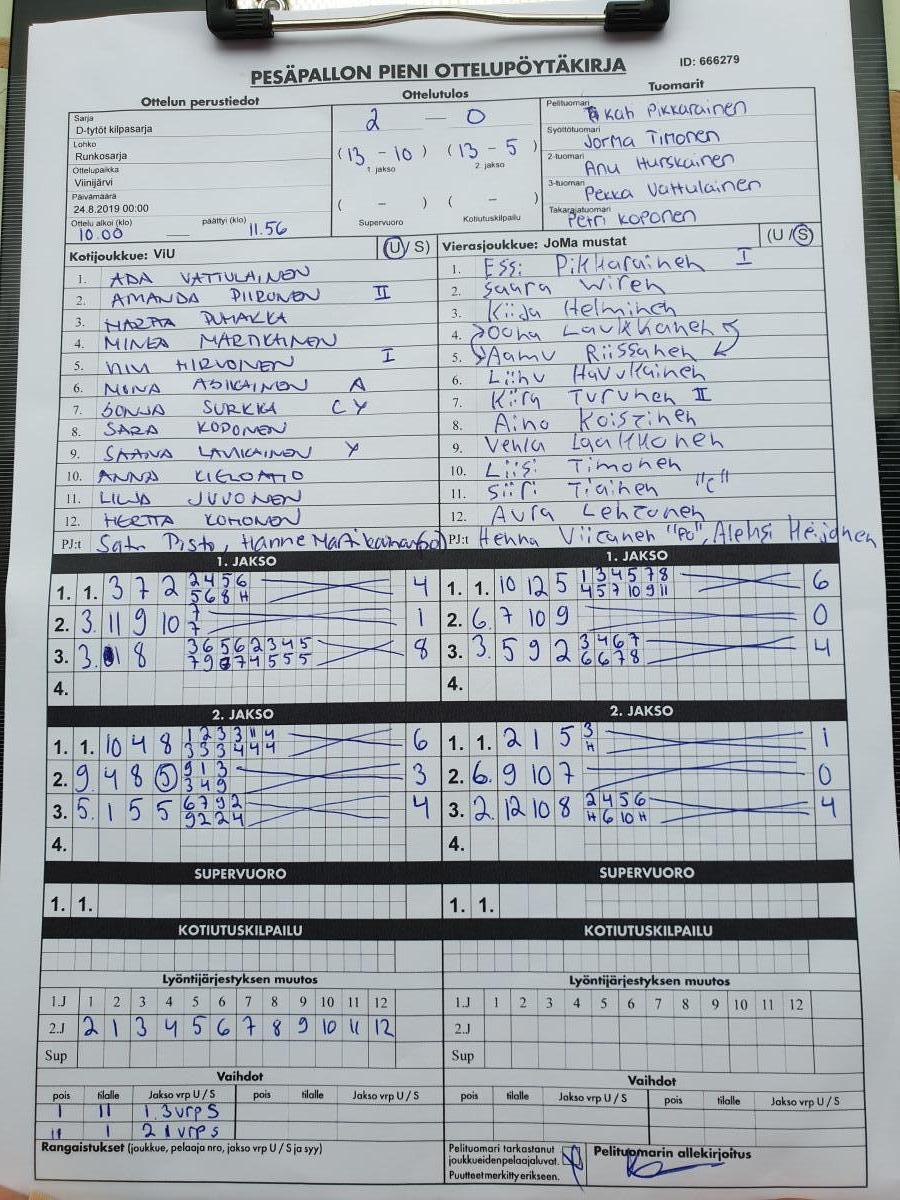 PESÄPALLON PIENI OTTELUPÖYTÄKIRJA
ID: 666279
Ottelun perustiedot
Sarja
D-tytöt kilpasarja
Lohko
Runkosarja
Ottelupaikka
Viinijärvi
Päivämäärä
24.8.2019 00:00
Ottelu alkoi (klo) päättyi (klo)
10.00 11.56
Ottelutulos
2 — 0
(13 - 10) (13 - 5)
1. jakso 2. jakso
( - ) ( - )
Supervuoro Kotiutuskilpailu
Tuomarit
Pelituomari Kati Pikkarainen
Syöttötuomari Jorma Timonen
2-tuomari Anu Hurskainen
3-tuoman Pekka Vattulainen
Takarajatuomari Petri Koponen
Kotijoukkue: ViU (U / S)
1. ADA VATTULAINEN
2. AMANDA PIIRONEN II
3. MARTTA PUHAKKA
4. MINEA MARTIKAINEN
5. HIRVONEN I
6. ASIKAINEN A
7. SONJA SURKKA C Y
8. SARA KOPONEN
9. SAANA LAVIKAINEN Y
10. ANNA
11. LILJA JUVONEN
12. HERTTA KOHONEN
PJ:t Satu Pisto, Hanne Martikainen
Vierasjoukkue: JoMa mustat (U / S)
1. Essi Pikkarainen I
2. Saara Wiren
3. Kiija Helminen
4. Oona Laukkanen
5. Aamu Riissanen
6. Liinu Havukainen
7. Kiira Turunen II
8. Aino Koistinen
9. Venla Laakkonen
10. Liisi Timonen
11. Siiri Tiainen "C"
12. Aura Lehtonen
PJ:t Henna Viitanen "PJ", Aleksi Heijanen
1. JAKSO
1. 1. 3 7 2 2 4 5 6 4
5 6 8 H
2. 3. 11 9 10 7 1
7
3. 3. 1 8 3 6 5 6 2 3 4 5 8
7 9 7 4 5 5 5
4.
1. JAKSO
1. 1. 10 12 5 1 3 4 5 7 8 6
4 5 7 10 9 11
2. 6. 7 10 9 0
3. 3. 5 9 2 3 4 6 7 4
6 6 7 8
4.
2. JAKSO
1. 1. 10 4 8 1 2 3 3 11 4 6
3 3 3 4 4 4
2. 9. 4 8 5 9 1 3 3
3 4 9
3. 5. 1 5 5 6 7 9 2 4
9 2 2 4
4.
2. JAKSO
1. 1. 2 1 5 3 1
H
2. 6. 9 10 7 0
3. 2. 12 10 8 2 4 5 6 4
H 6 10 H
4.
SUPERVUORO
1. 1.
SUPERVUORO
1. 1.
KOTIUTUSKILPAILU
KOTIUTUSKILPAILU
Lyöntijärjestyksen muutos
1.J 1 2 3 4 5 6 7 8 9 10 11 12
2.J 2 1 3 4 5 6 7 8 9 10 11 12
Sup
Lyöntijärjestyksen muutos
1.J 1 2 3 4 5 6 7 8 9 10 11 12
2.J
Sup
Vaihdot
pois tilalle Jakso vrp U / S pois tilalle Jakso vrp U / S
1 11 1. 3 vrp S
11 1 2 1 vrp S
Vaihdot
pois tilalle Jakso vrp U / S pois tilalle Jakso vrp U / S
Rangaistukset (joukkue, pelaaja nro, jakso vrp U / S ja syy)
Pelituomari tarkastanut
joukkueidenpelaajaluvat.
Puutteet merkitty erikseen.
Pelituomarin allekirjoitus